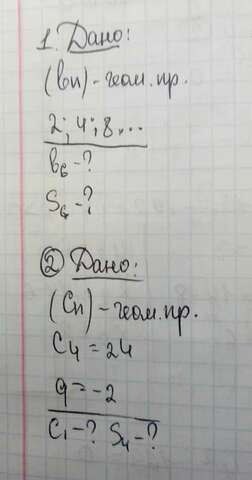 1. Дано:
(bn) - геом. пр.
2; 4; 8, ...
b6 - ?
S6 - ?
② Дано:
(Cn) - геом. пр.
C4 = 24
q = -2
C1 - ? S4 - ?